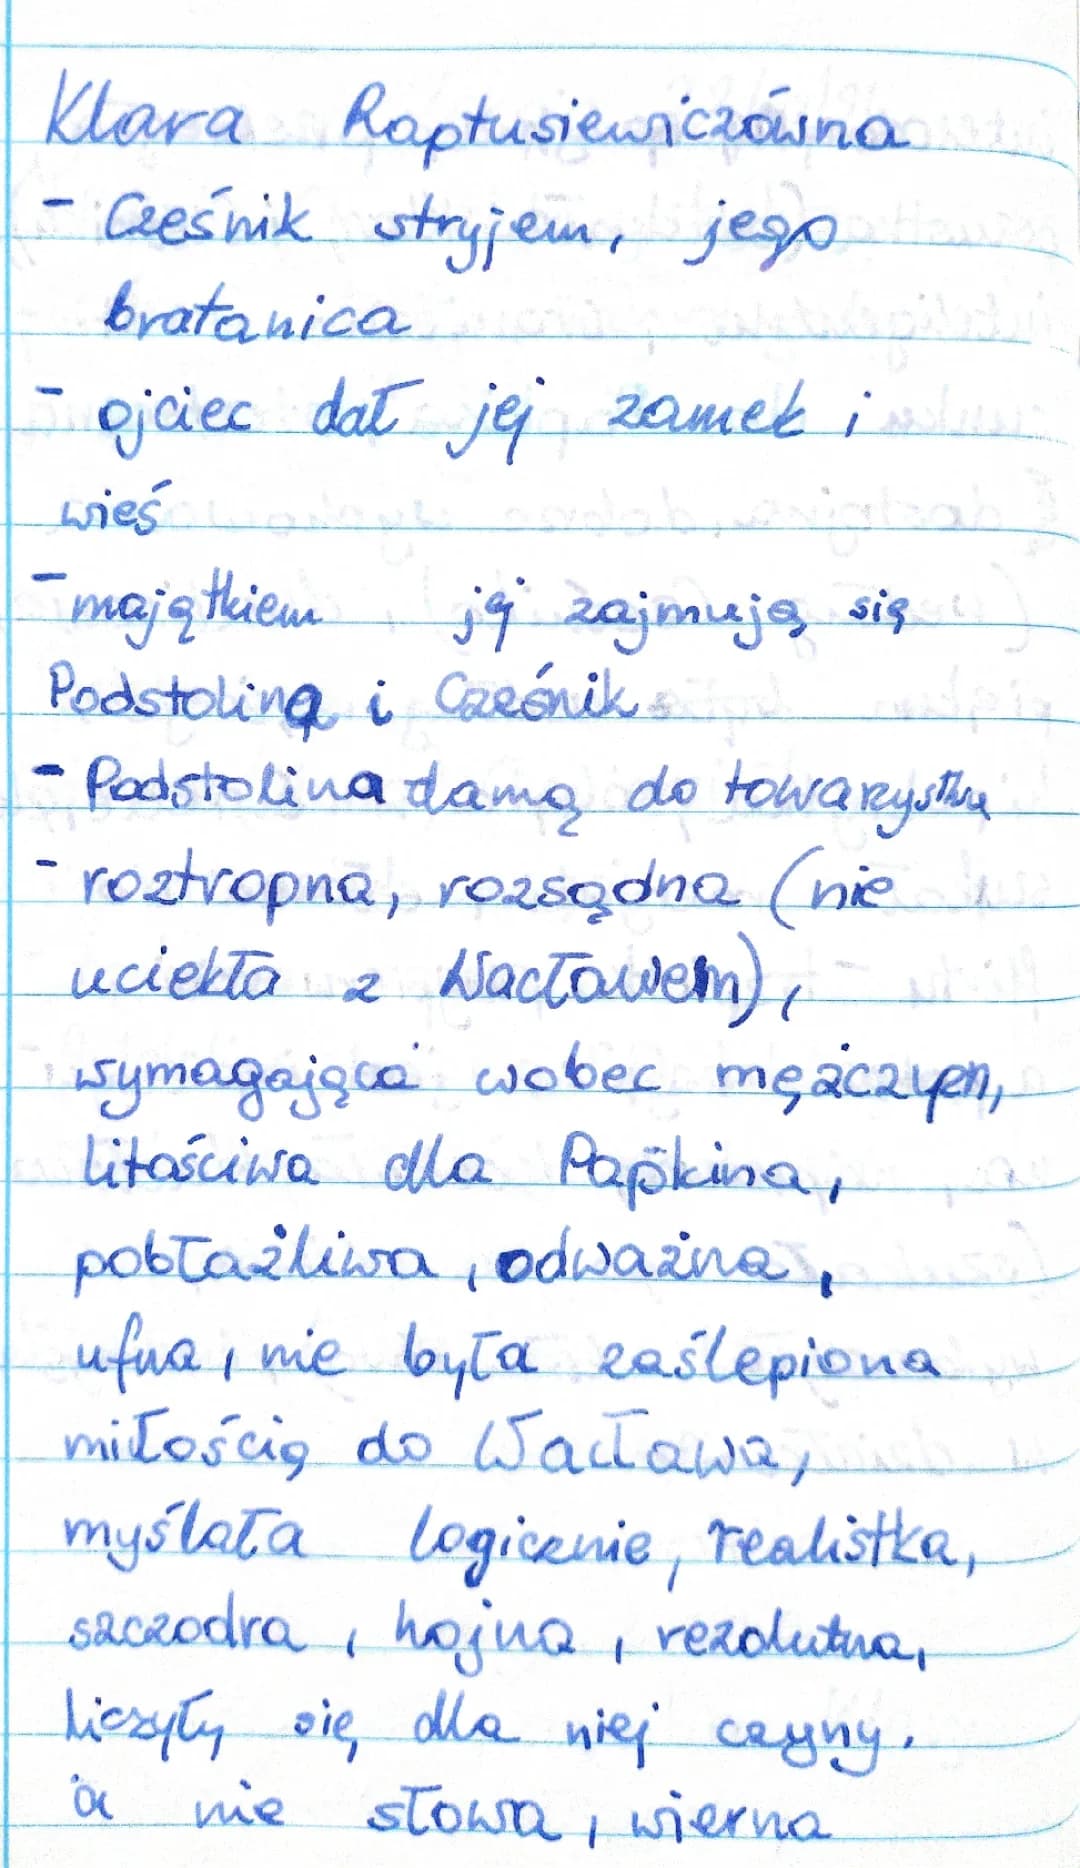 Klara Raptusiewiczówna
- Cześnik stryjem, jego
bratanica
- ojciec dał jej zamek i
wieś
- majątkiem jej zajmują się
Podstolina i Cześnik
- Podstolina damą do towarzystwa
- roztropna, rozsądna (nie
uciekła z Wacławem),
wymagająca wobec mężczyzn,
litościwa dla Papkina,
pobłażliwa, odważna,
ufna, nie była zaślepiona
miłością do Wacława,
myślała logicznie, realistka,
szczodra, hojna, rezolutna,
liczyły się dla niej czyny,
a nie słowa, wierna